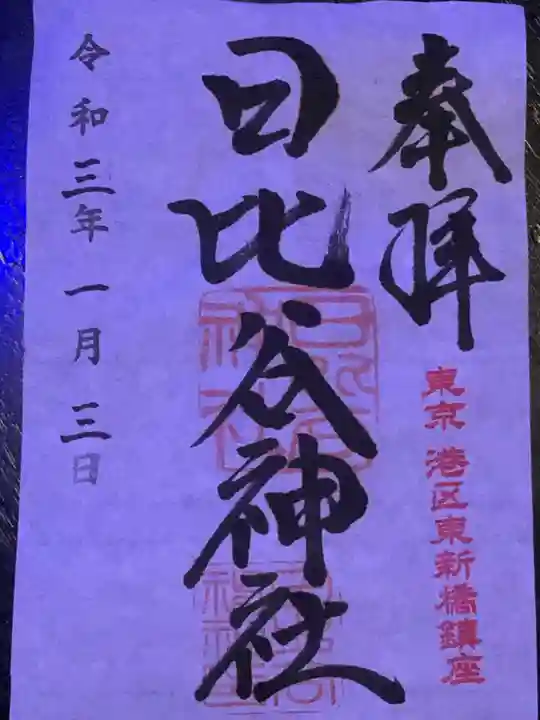 奉拝
東京 港区東新橋鎮座
日比谷神社
令和三年 一月 三日